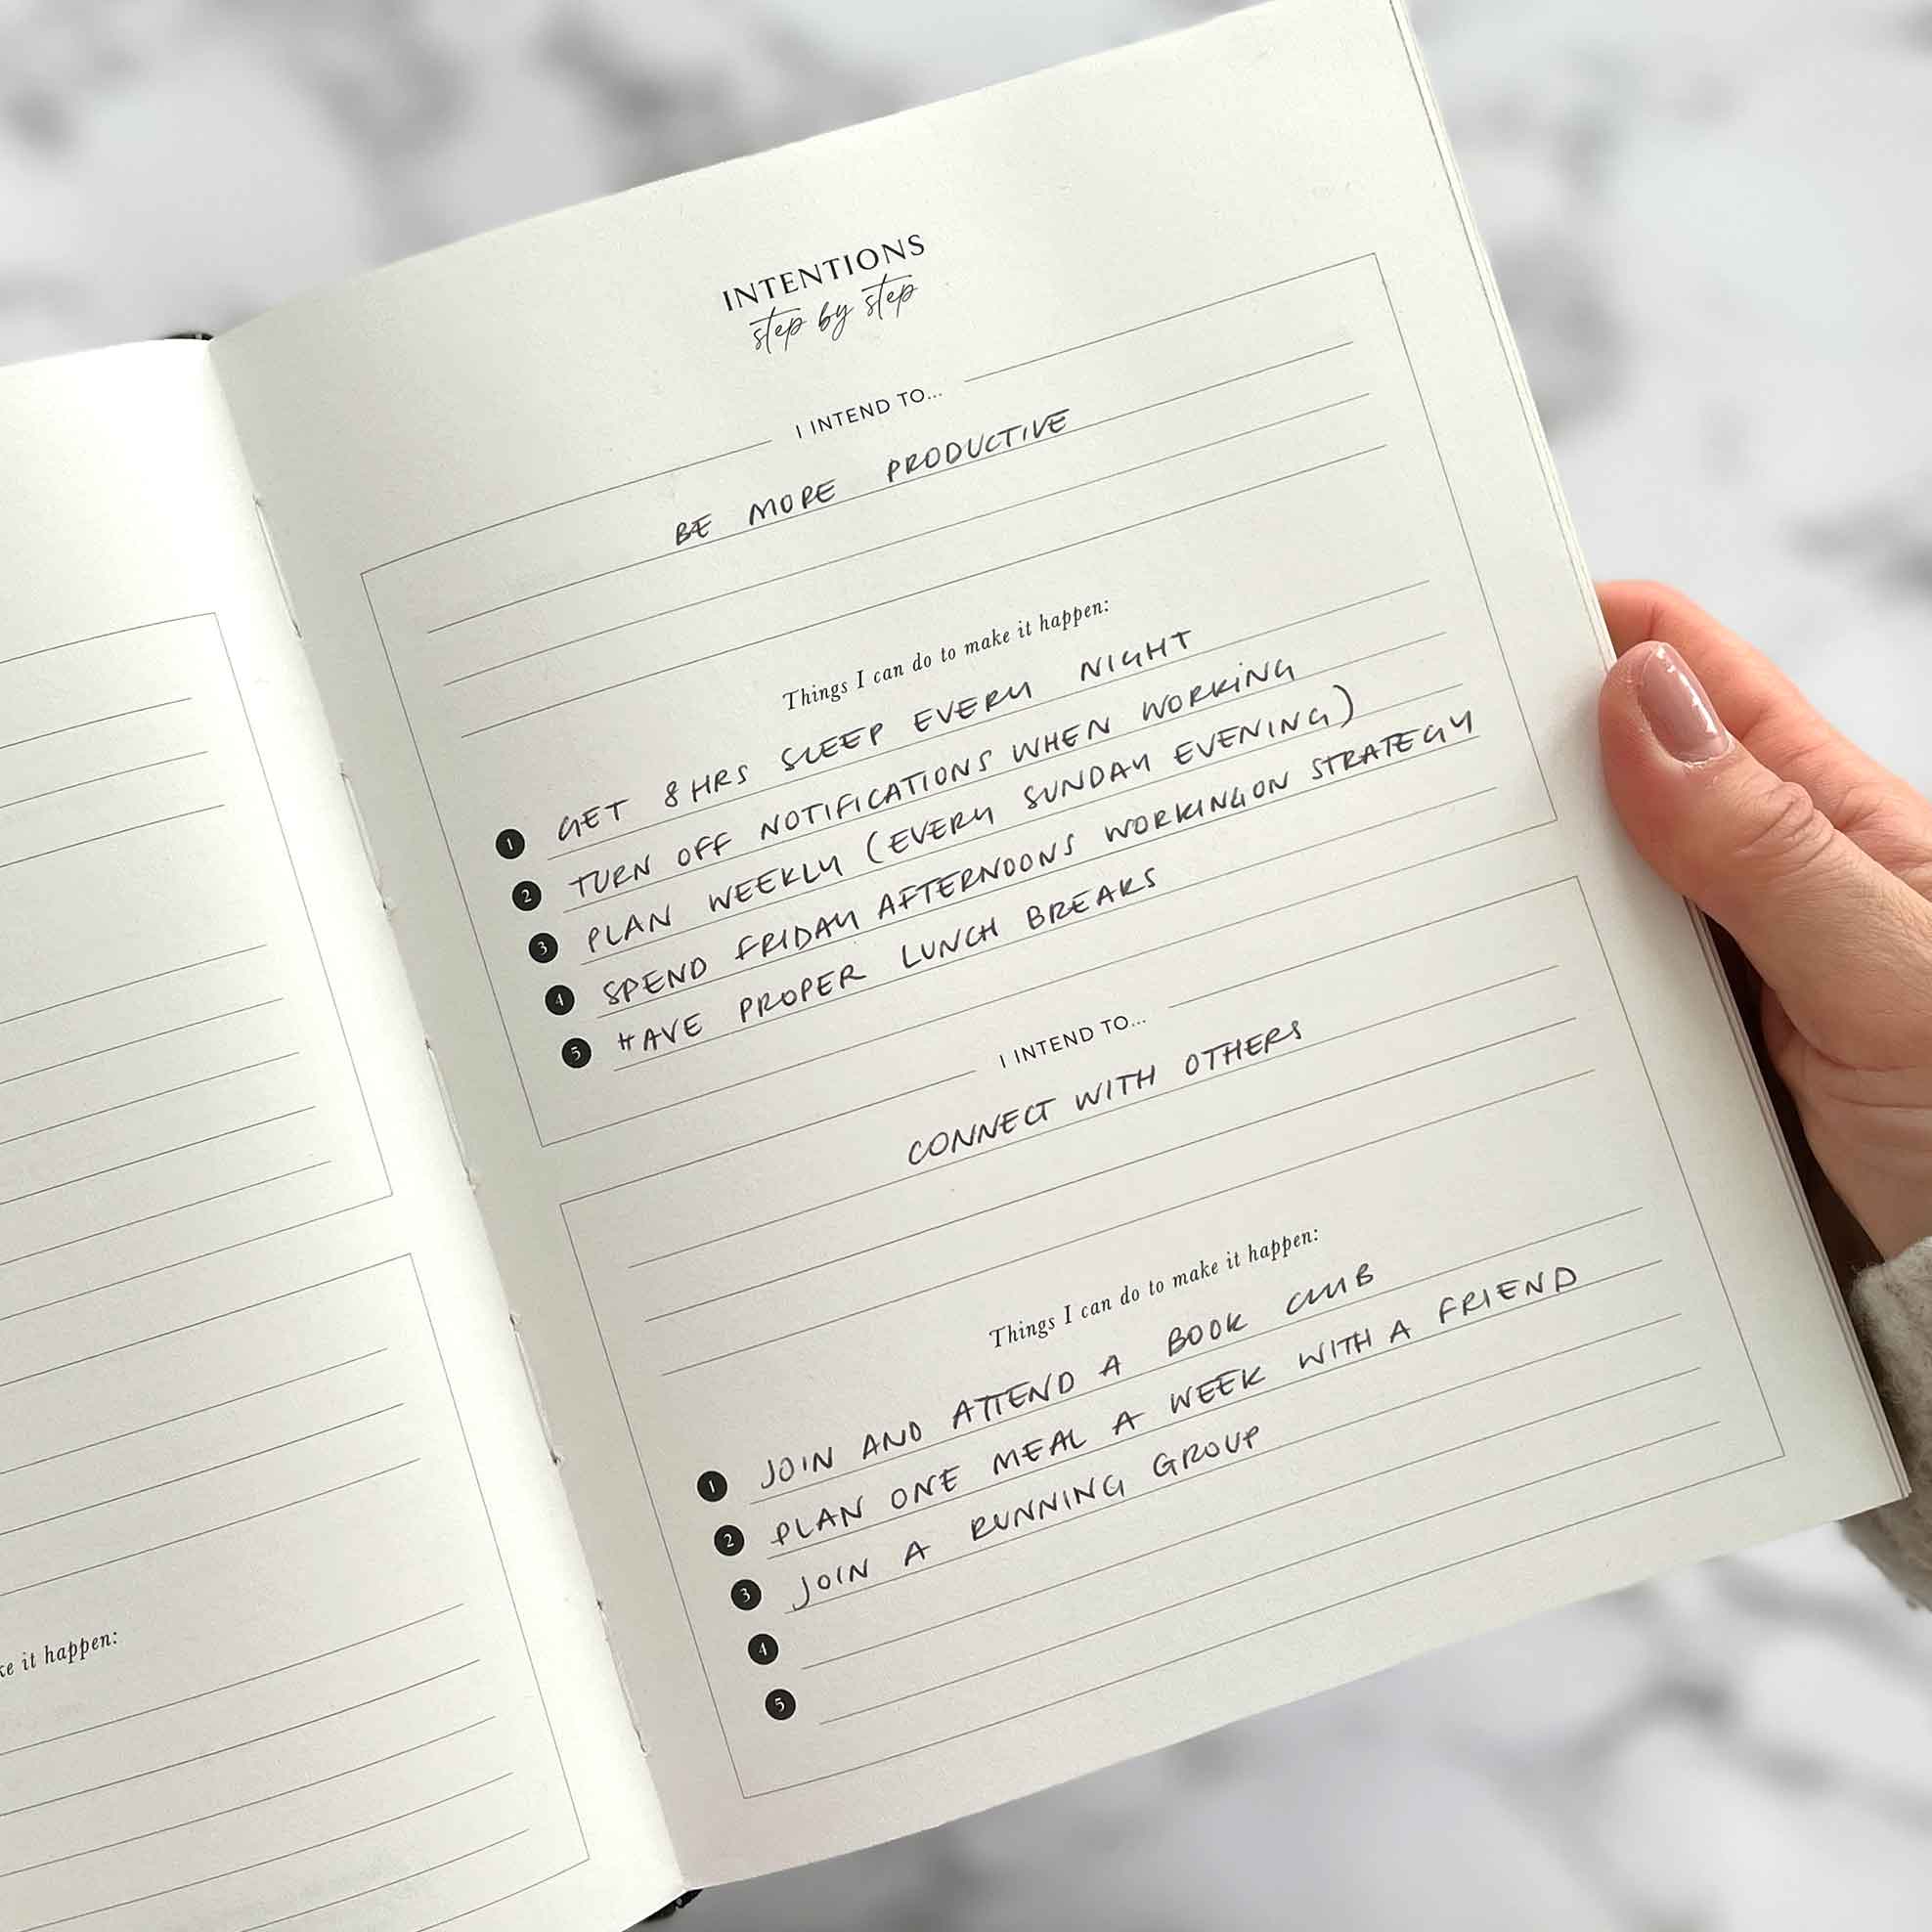 ke it happen:
INTENTIONS
step by step
I INTEND TO...
BE MORE PRODUCTIVE
Things I can do to make it happen:
1 GET 8HRS SLEEP EVERY NIGHT
2 TURN OFF NOTIFICATIONS WHEN WORKING
3 PLAN WEEKLY (EVERY SUNDAY EVENING)
4 SPEND FRIDAY AFTERNOONS WORKING ON STRATEGY
5 HAVE PROPER LUNCH BREAKS
I INTEND TO...
CONNECT WITH OTHERS
Things I can do to make it happen:
1 JOIN AND ATTEND A BOOK CLUB
2 PLAN ONE MEAL A WEEK WITH A FRIEND
3 JOIN A RUNNING GROUP
4
5